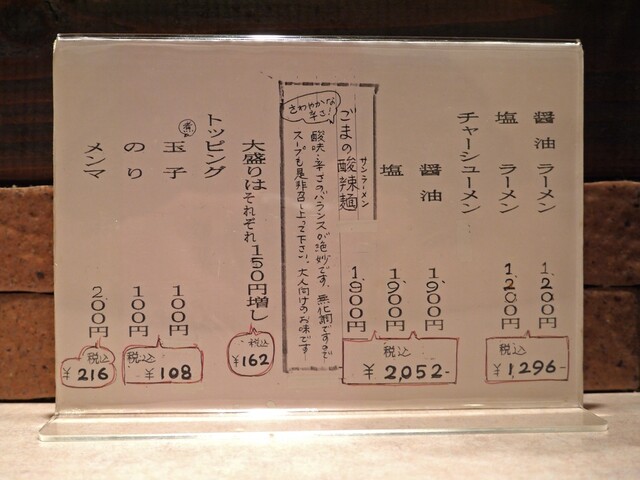 醤油ラーメン 1,200円
塩ラーメン 1,200円
税込 ¥1,296-
チャーシューメン
醤油 1,900円
塩 1,900円
サンラーメン
ごまの酸辣麺 1,900円
税込 ¥2,052-
さわやかな辛さ!
酸味・辛さのバランスが絶妙です。無化調ですので
スープも是非召し上って下さい。大人向けのお味です
大盛りはそれぞれ150円増し
税込 ¥162
トッピング
煮玉子 100円
のり 100円
税込 ¥108
メンマ 200円
税込 ¥216